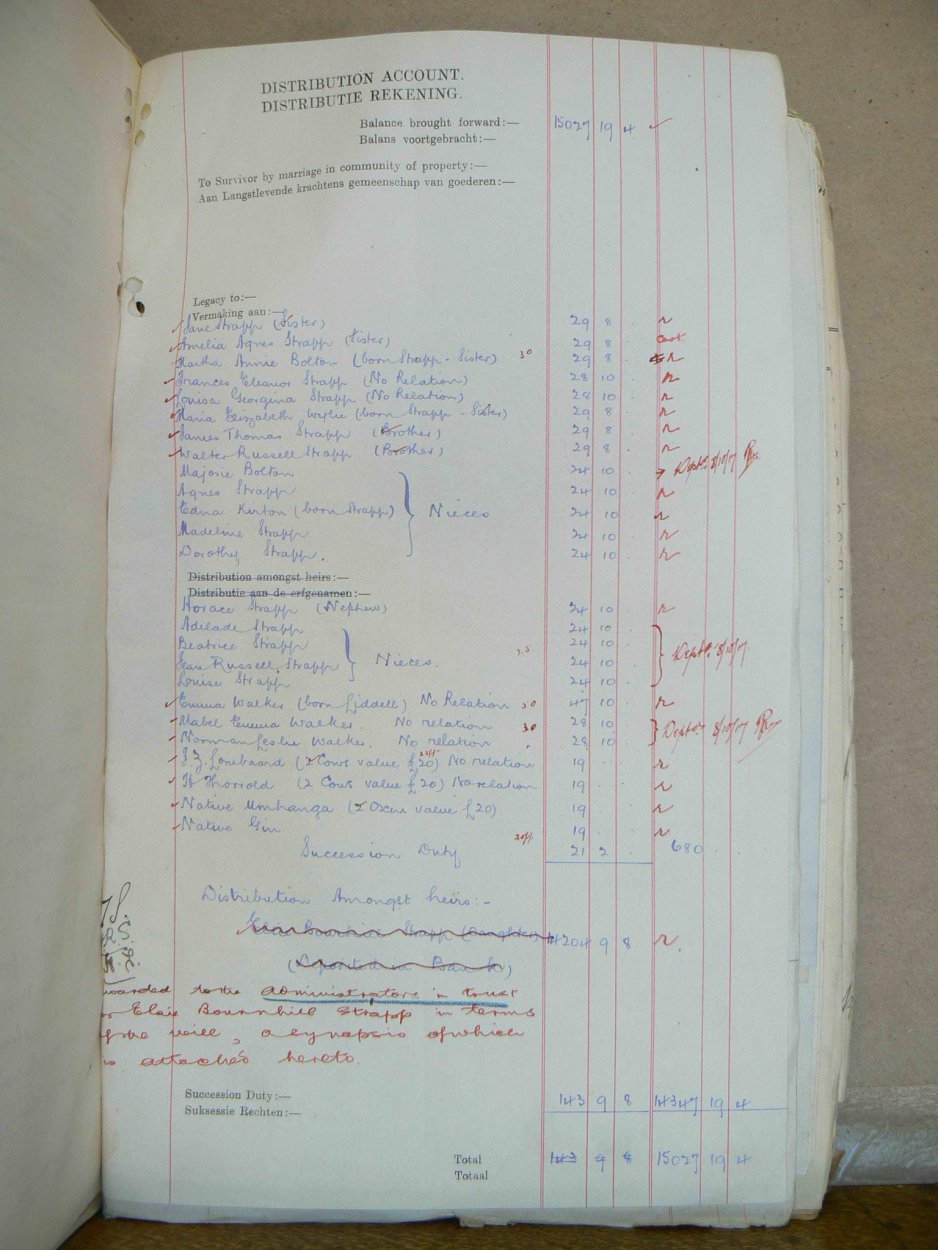 DISTRIBUTION ACCOUNT.
DISTRIBUTIE REKENING.
Balance brought forward:— 15027 19 4
Balans voortgebracht:—
To Survivor by marriage in community of property:—
Aan Langstlevende krachtens gemeenschap van goederen:—
Legacy to:—
Vermaking aan:—
Jane Strapp (Sister) 29 8
Amelia Agnes Strapp (Sister) 29 8
Martha Annie Bolton (born Strapp - Sister) 30 29 8
Frances Eleanor Strapp (No Relation) 28 10
Louisa Georgina Strapp (No Relation) 28 10
Maria Elizabeth Wylie (born Strapp - Sister) 29 8
James Thomas Strapp (Brother) 29 8
Walter Russell Strapp (Brother) 29 8
Majorie Bolton 24 10 . 8/10/17
Agnes Strapp 24 10
Edna Kirton (born Strapp) Nieces 24 10
Madeline Strapp 24 10
Dorothy Strapp. 24 10
Distribution amongst heirs:—
Distributie aan de erfgenamen:—
Horace Strapp (Nephew) 24 10
Adelade Strapp 24 10
Beatrice Strapp 24 10
Jean Russell Strapp Nieces. 24 10 8/10/17
Louise Strapp 24 10
Emma Walker (born Liddell) No Relation 30 47 10
Mabel Emma Walker. No relation 30 28 10 8/10/17
Norman Leslie Walker. No relation 28 10
J.J. Lombaard (2 Cows value £20) No relation 19
H Thorrold (2 Cows value £20) No relation 19
Native Umhanga (2 Oxen value £20) 19
Native Gin 19
Succession Duty 21 2 680
Distribution Amongst heirs:-
Elsie Bournhill Strapp (Daughter) 14204 9 8
(Deposited in Bank)
warded to the administrators in trust
r Elsie Bournhill Strapp in terms
f the will, a synopsis of which
is attached hereto.
Succession Duty:— 143 9 8 14347 19 4
Suksessie Rechten:—
Total 143 9 8 15027 19 4
Totaal